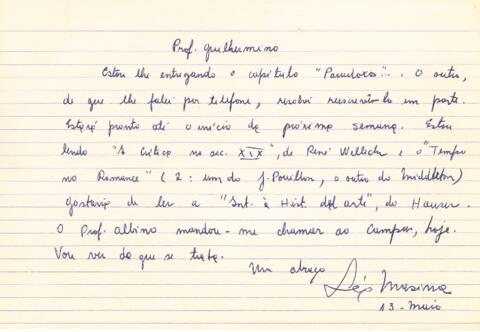 Prof. Guilhermino
Estou lhe entregando o capítulo "Paradoxo...". O outro,
de que lhe falei por telefone, resolvi reescrevê-lo em parte.
Estará pronto até o início da próxima semana. Estou
lendo "A Crítica no sec. XIX", de René Wellek, e o "Tempo
no Romance" (2: um do J. Pouillon, o outro do Middleton)
Gostaria de ler a "Int. à Hist. del arte", do Hauser.
O Prof. Albino mandou-me chamar ao Campus, hoje.
Vou ver do que se trata.
Um abraço
Masina
13 - Maio